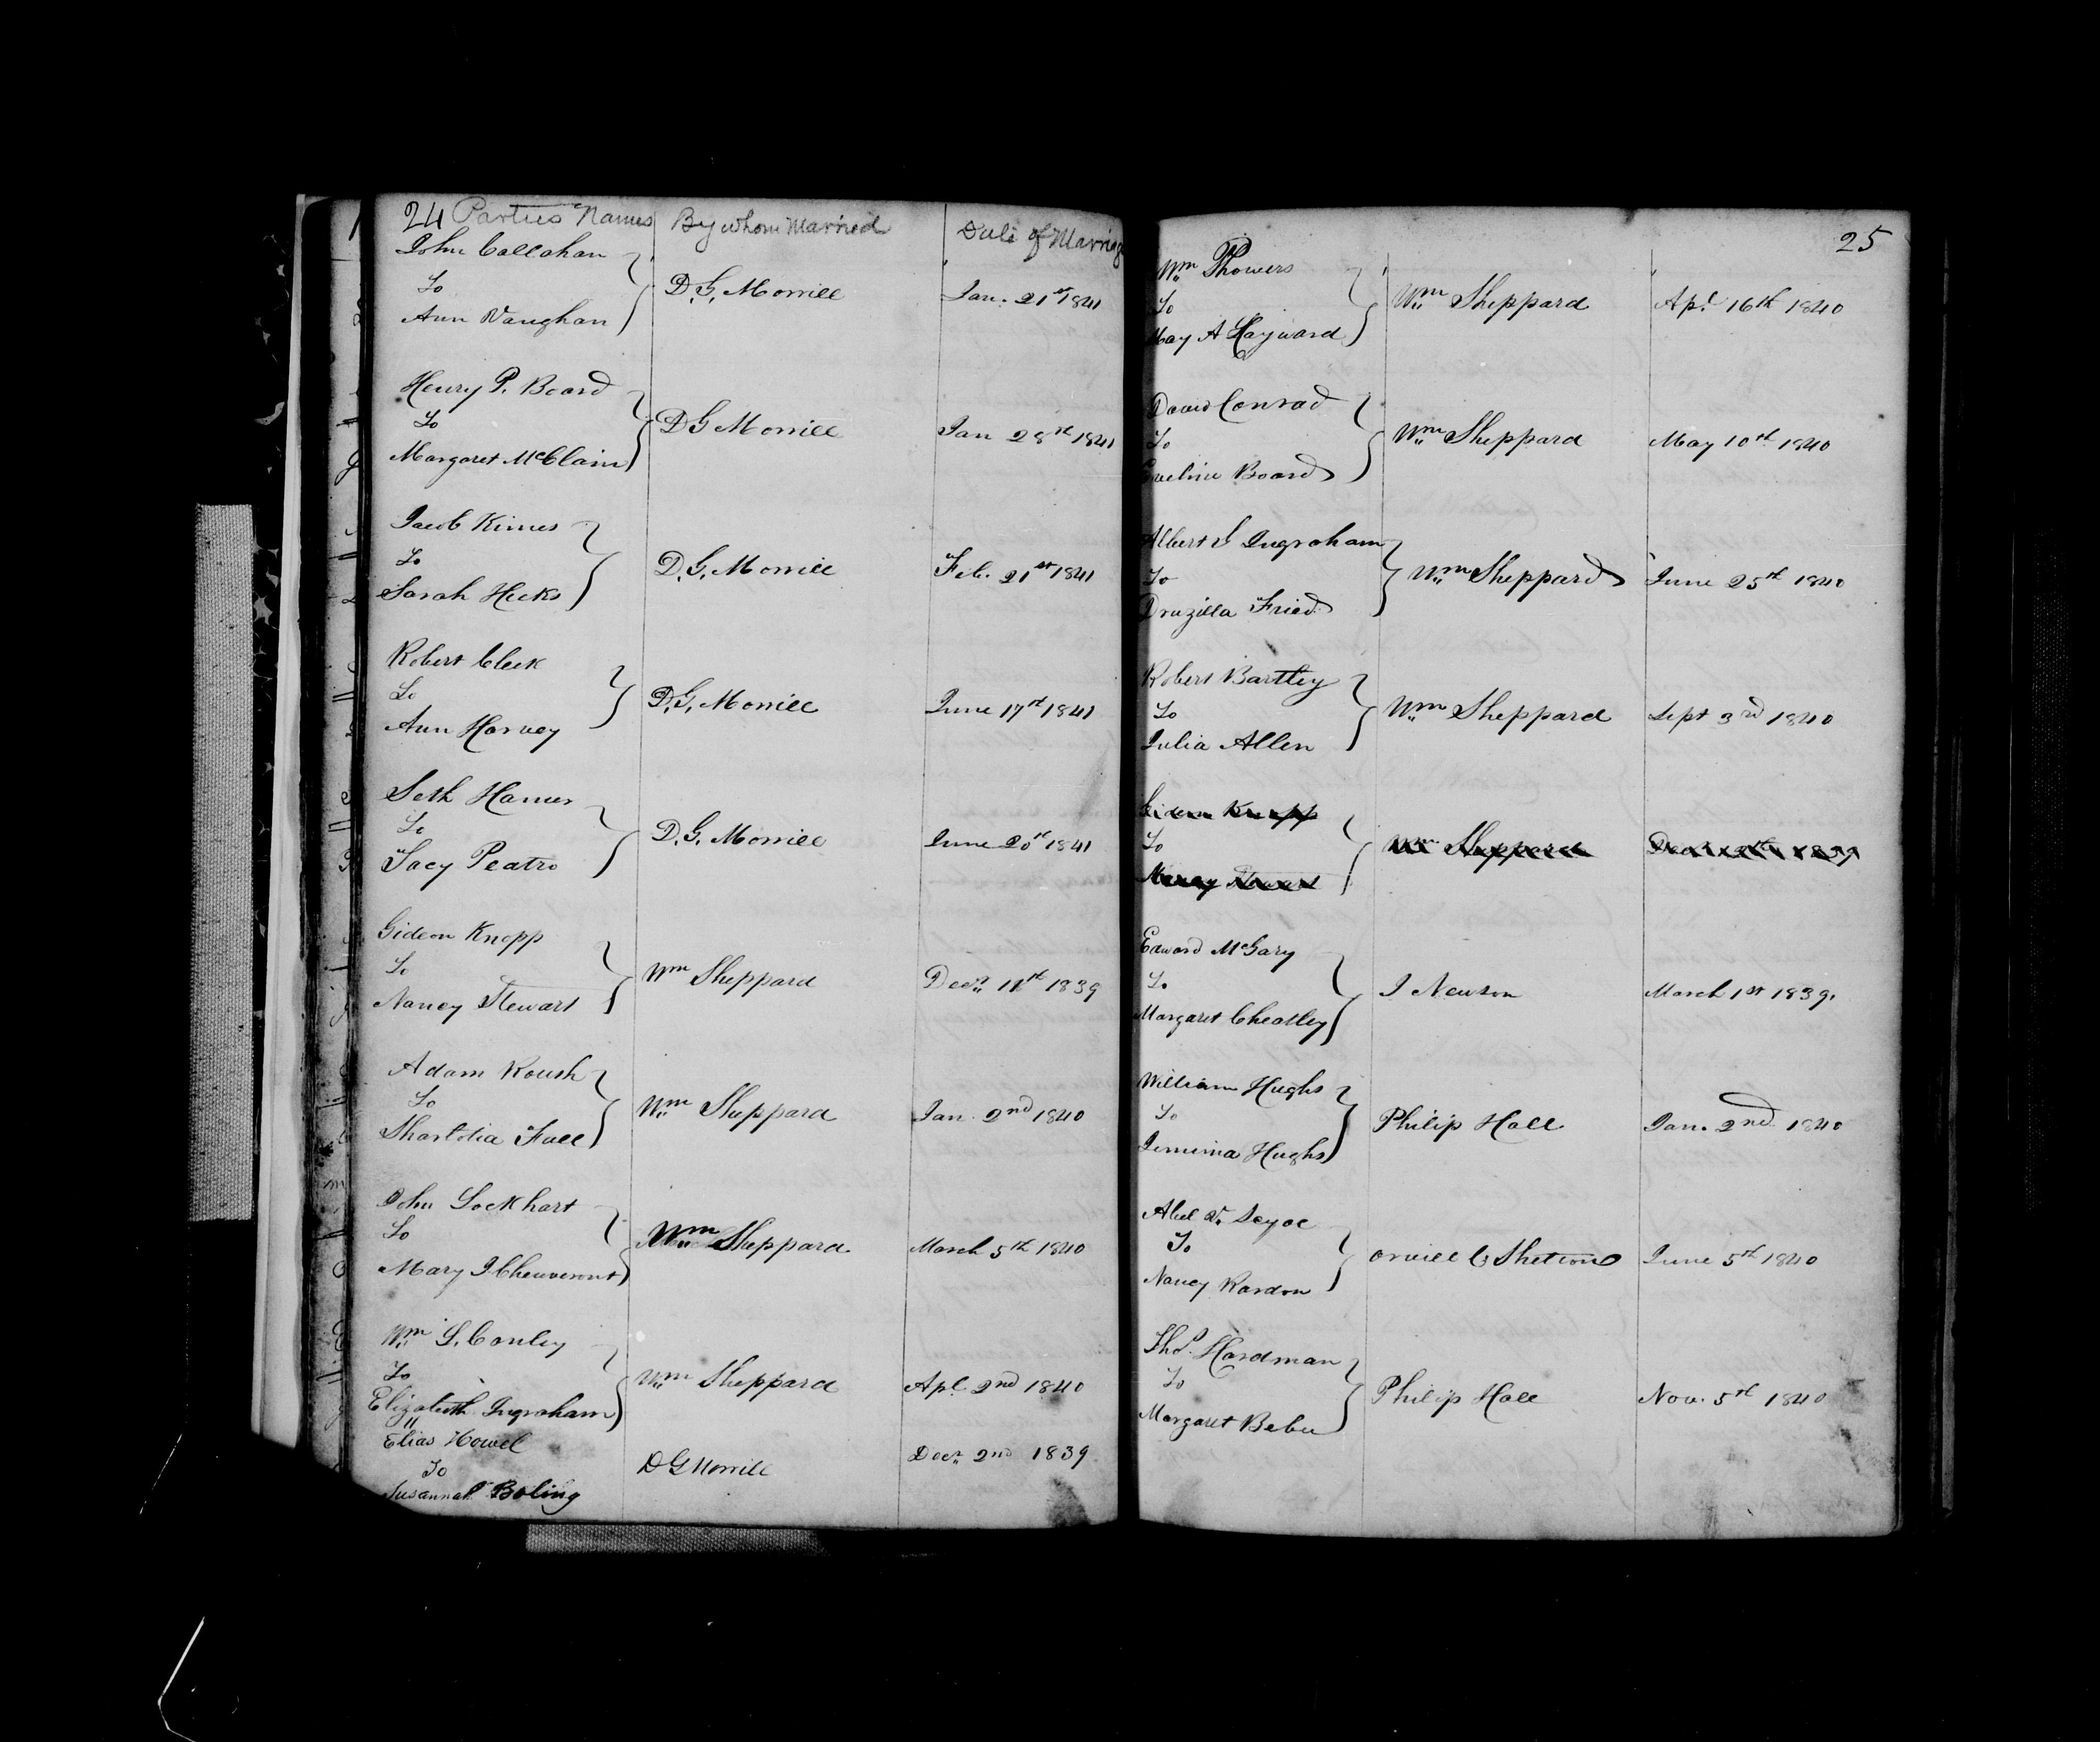 24 Parties Names By whom Married Date of Marriage
John Callahan
To D. G. Morrill Jan. 21st 1841
Ann Vaughan
Henry P. Board
To D G Morrill Jan 28th 1841
Margaret McClain
Jacob Kimes
To D. G. Morrill Feb. 21st 1841
Sarah Hicks
Robert Cleek
To D. G. Morrill June 17th 1841
Ann Harvey
Seth Hamer
To D. G. Morrill June 20th 1841
Tacy Peatro
Gideon Knopp
To Wm Sheppard Decr. 11th 1839
Nancy Stewart
Adam Roush
To Wm Sheppard Jan. 2nd 1840
John Lockhart
To Wm Sheppard March 5th 1840
Mary J Cheuveront
Wm S. Conley
To Wm Sheppard Apl. 2nd 1840
Elizabeth Ingraham
Elias Howel
To D G Morrill Decr. 2nd 1839
Susannah Boling
25
Wm Powers
To Wm Sheppard Apl. 16th 1840
May A Hayward
David Conrad
To Wm Sheppard May 10th 1840
Eveline Board
Albert S Ingraham
To Wm Sheppard June 25th 1840
Druzilla Fried
Robert Bartley
To Wm Sheppard Sept 3rd 1840
Julia Allen
Gideon Knopp
To Wm Sheppard 1839
Nancy Stewart
Edward McGary
To J Newson March 1st 1839.
Margaret Cheatley
William Hughs
To Philip Hall Jan. 2nd 1840
Jemima Hughs
Abel
To June 5th 1840
Nancy Rardon
Thos. Hardman
To Philip Hall Nov. 5th 1840
Margaret